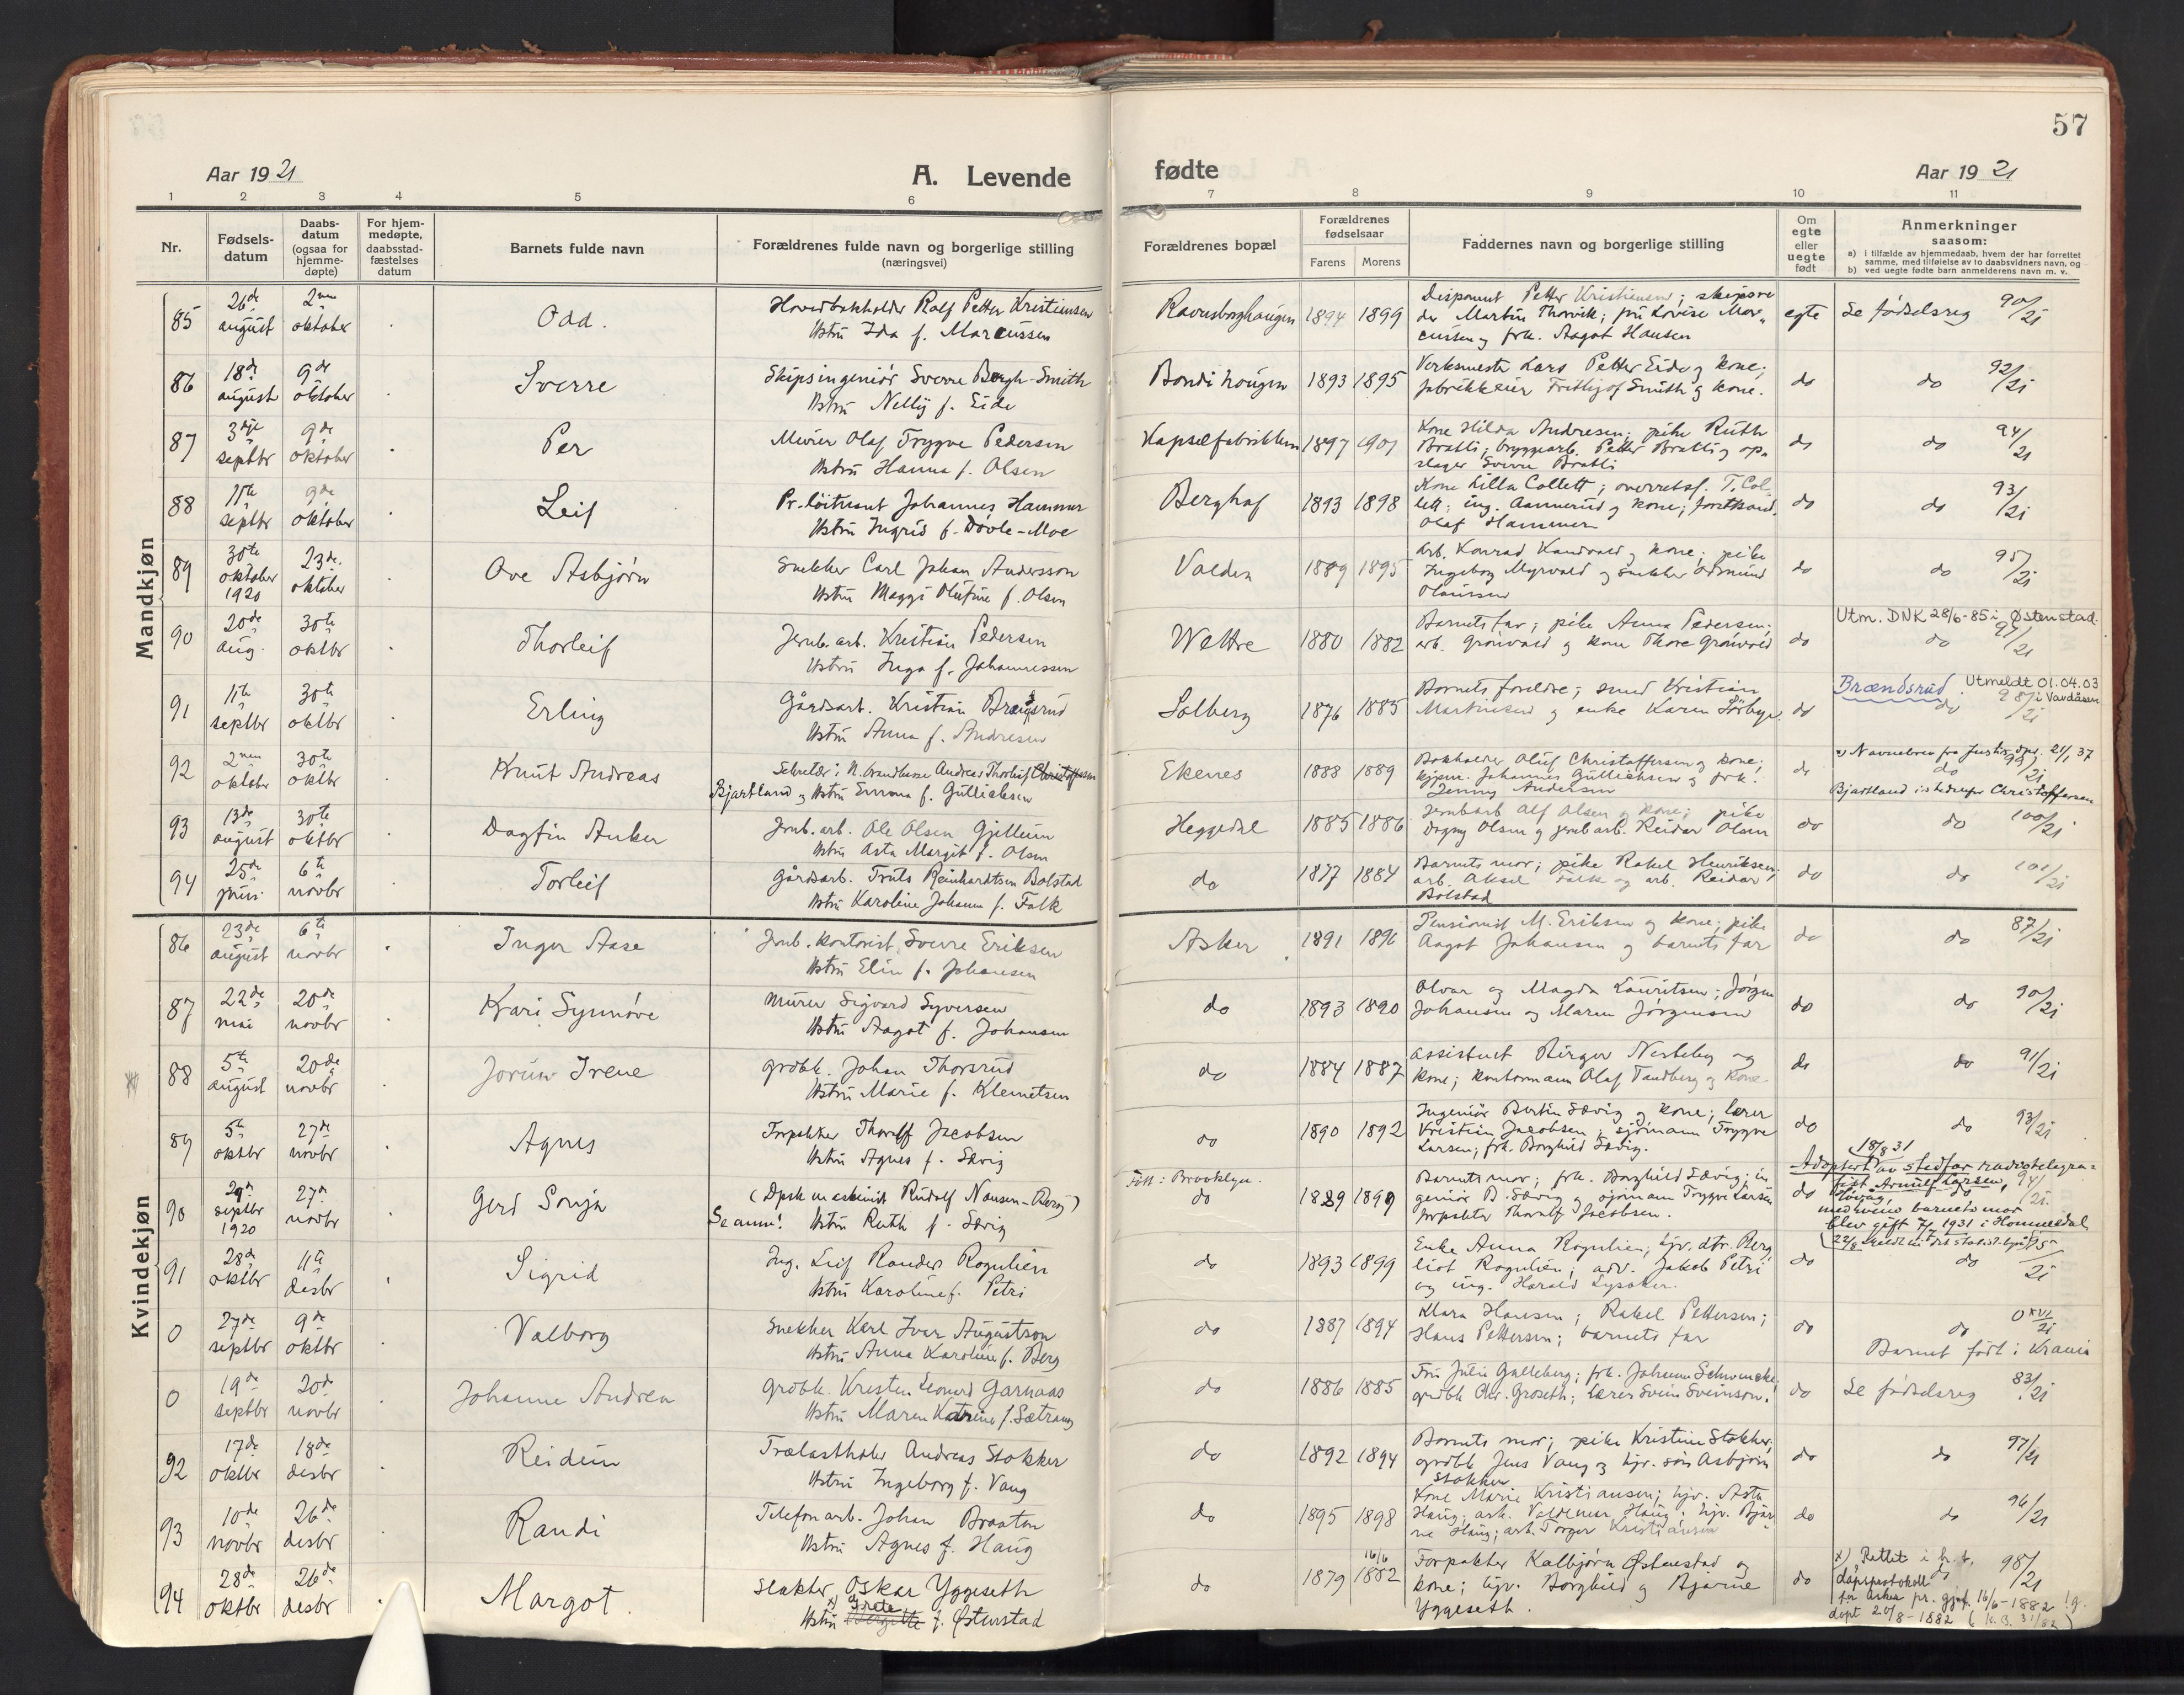 57
Aar 1921
A. Levende
fødte
Aar 1921
1 2 3 4 5 6 7 8 9 10 11
Nr.
Fødsels-
datum
Daabs-
datum
(ogsaa for
hjemme-
døpte)
For hjem-
medøpte,
daabsstad-
fæstelses
datum
Barnets fulde navn
Forældrenes fulde navn og borgerlige stilling
(næringsvei)
Forældrenes bopæl
Forældrenes
fødselsaar
Farens Morens
Faddernes navn og borgerlige stilling
Om
egte
eller
uegte
født
Anmerkninger
saasom:
a) i tilfælde av hjemmedaab, hvem der har forrettet
samme, med tilføielse av to daabsvidners navn, og
b) ved uegte fødte barn anmelderens navn m. v.
Mandkjøn
85 26de august 2nen oktober Odd.
Hovedbokholder Rolf Petter Kristiansen
Hstru Ida f. Marcussen
Ravnsborghaugen 1894 1899
Disponent Petter Kristiansen; skipsre-
der Martin Thorvik; fru Lovise Mar-
cussen og frk. Aagot Hansen
egte Se fødselsreg 90/21
86 18de august 9de oktober Sverre
Skipsingeniør Sverre Borgh-Smith
Hstru Nelly f. Eide
Bondi haugen 1893 1895
Verksmester Lars Petter Eide og kone;
fabrikkeier Fritjof Smith og kone.
do do 92/21
87 3dje septbr 9de oktober Per
Murer Olaf Trygve Pedersen
Hstru Hanna f. Olsen
Kapselfabrikken 1897 1901
Kone Hilda Andresen; pike Ruth
Bratli; bryggearb. Petter Bratli og op-
slager Sverre Bratli
do do 94/21
88 11te septbr 9de oktober Leif
Pr. løitnant Johannes Hammer
Hstru Ingrid f. Dovle-Moe
Berghof 1893 1898
Kone Lilla Collett; overretssf. T. Col-
lett; ing. Aannerud og kone; forstkand.
Olaf Hammer
do do 93/21
89 30te oktober 1920 23de oktober Ove Asbjørn
Snekker Carl Johan Andersson
Hstru Maggi Olufine f. Olsen
Valden 1889 1895
Arb. Konrad Kandvald og kone; pike
Ingeborg Myrvold og snekker Osmund
Olaussen
do do 95/21
90 20de aug. 30te oktbr Thorleif
Jernb. arb. Kristian Pedersen
Hstru Inga f. Johannessen
Wettre 1880 1882
Barnets far; pike Anna Pedersen;
arb. Grønvold og kone Thora Grønvold
do Utm. DNK 28/6-85 i Østenstad.
do 97/21
91 11te septbr 30te oktbr Erling
Gårdsarb. Kristian Brændsrud
Hstru Anna f. Andresen
Solberg 1876 1885
Barnets foreldre; smed Kristian
Martinsen og enke Karen Sørbye.
do Brændsrud. Utmeldt 01.04.03
do 98/21 i Vardåsen
92 2nen oktober 30te oktbr Knut Andreas
Sekretær i N. brandkasse Andreas Thorleif Christoffersen
Bjartland og Hstru Emma f. Gulliksen
Ekenes 1888 1889
Bokholder Oluf Christoffersen og kone;
kjøpm. Johannes Gulliksen og frk.
Jenny Andersen
do x) Navnebrev fra Justisdpt. 21/1 37
do 99/21
Bjartland istedenfor Christoffersen
93 13de august 30te oktbr Dagfin Anker
Jernb. arb. Ole Olsen Gjellum
Hstru Asta Margit f. Olsen
Heggedal 1885 1886
Jernbarb Alf Olsen og kone; pike
Dagny Olsen og jernb arb. Reidar Olsen
do do 100/21
94 25de juni 6te novbr Torleif
Gårdsarb. Truls Reinhardtsen Bolstad
Hstru Karoline Johanne f. Falk
do 1877 1884
Barnets mor; pike Rakel Henriksen;
arb. Aksel Falk og arb. Reidar
Bolstad
do do 101/21
Kvindekjøn
86 23de august 6te novbr Inger Aase
Jernb. kontorist Sverre Eriksen
Hstru Elin f. Johansen
Asker 1891 1896
Pensionist M. Eriksen og kone; pike
Aagot Johansen og barnets far
do do 87/21
87 22de mai 20de novbr Kari Synnøve
Murer Sigvard Syversen
Hstru Aagot f. Johansen
do 1893 1890
Olvar og Magda Lauritsen; Jørgen
Johansen og Maren Jørgensen
do do 90/21
88 5te august 20de novbr Jorun Irene
grdbk. Johan Thorsrud
Hstru Marie f. Klemetsen
do 1884 1887
Assistent Birger Nesteby og
kone; kontormann Olaf Tandberg og kone.
do do 91/21
89 5te oktbr 27de novbr Agnes
Forpakter Thoralf Jacobsen
Hstru Agnes f. Sævig
do 1890 1892
Ingeniør Bertin Sævig og kone; lærer
Kristian Jacobsen; sjømann Trygve
Larsen; frk. Borghild Sævig.
do do 93/21
90 29de septbr 1920 27de novbr Gerd Sonja
(Dpsk maskinist Rudolf Nansen-Borg)
Se anm! Hstru Ruth f. Sævig
Født i Brooklyn.
do 1889 1899
Barnets mor; frk. Borghild Sævig; in-
geniør B. Sævig og sjømann Trygve Larsen
forpakter Thoralf Jacobsen.
do 18/8 31
Adoptert av stedfar radiotelegra-
fist Arnulf Larsen, do 94/21
med hvem barnets mor
blev gift 7/7 1931 i Hommedal
91 28de oktbr 11te desbr Sigrid
Ing. Leif Rander Rognlien
Hstru Karoline f. Petri
do 1893 1899
Enke Anna Rognlien; hjv. dtr. Berg-
liot Rognlien; adv. Jakob Petri
og ing. Harald Lysaker.
do do 95/21
0 27de septbr 9de oktbr Valborg
Snekker Karl Ivar Augustson
Hstru Anna Karoline f. Berg
do 1887 1894
Klara Hansen; Rakel Pettersen;
Hans Pettersen; barnets far
do do 0 xvi/21
Barnet født i Krania
0 19de septbr 20de novbr Johanne Andrea
grdbk. Kresten Leonard Garnaas
Hstru Maren Katrine f. Sætrang
do 1886 1885
Fru Julie Gulleberg; frk. Johanne Schwencke;
grdbk Chr. Groseth; lærer Svein Sveinson.
do Se fødselsreg 83/21
92 17de oktbr 18de desbr Reidun
Trælasthdlr Andreas Stokker
Hstru Ingeborg f. Vang
do 1892 1894
Barnets mor; pike Kristine Stokker;
grdbk Jens Vang og hjv. søn Asbjørn
Stokker
do do 97/21
93 10de novbr 26de desbr Randi
Telefonarb. Johan Braaten
Hstru Agnes f. Haug
do 1895 1898
Kone Marie Kristiansen; hjv. Asta
Haug; arb. Valdemar Haug; hjv. Bjar-
ne Haug; arb. Torger Kristiansen
do do 96/21
94 28de oktbr 26de desbr Margot.
Slakter Oskar Yggeseth
x) Grete
Hstru Østenstad
do 1879 16/6 1882
Forpakter Kalbjørn Østenstad og
kone; hjv. Borghild og Bjarne
Yggeseth.
do x) Rettet i h. t. 98/21
dåpsprotokoll do
for Asker pr. gjf. 16/6-1882
døpt 20/8-1882 (k.B. 31/82)